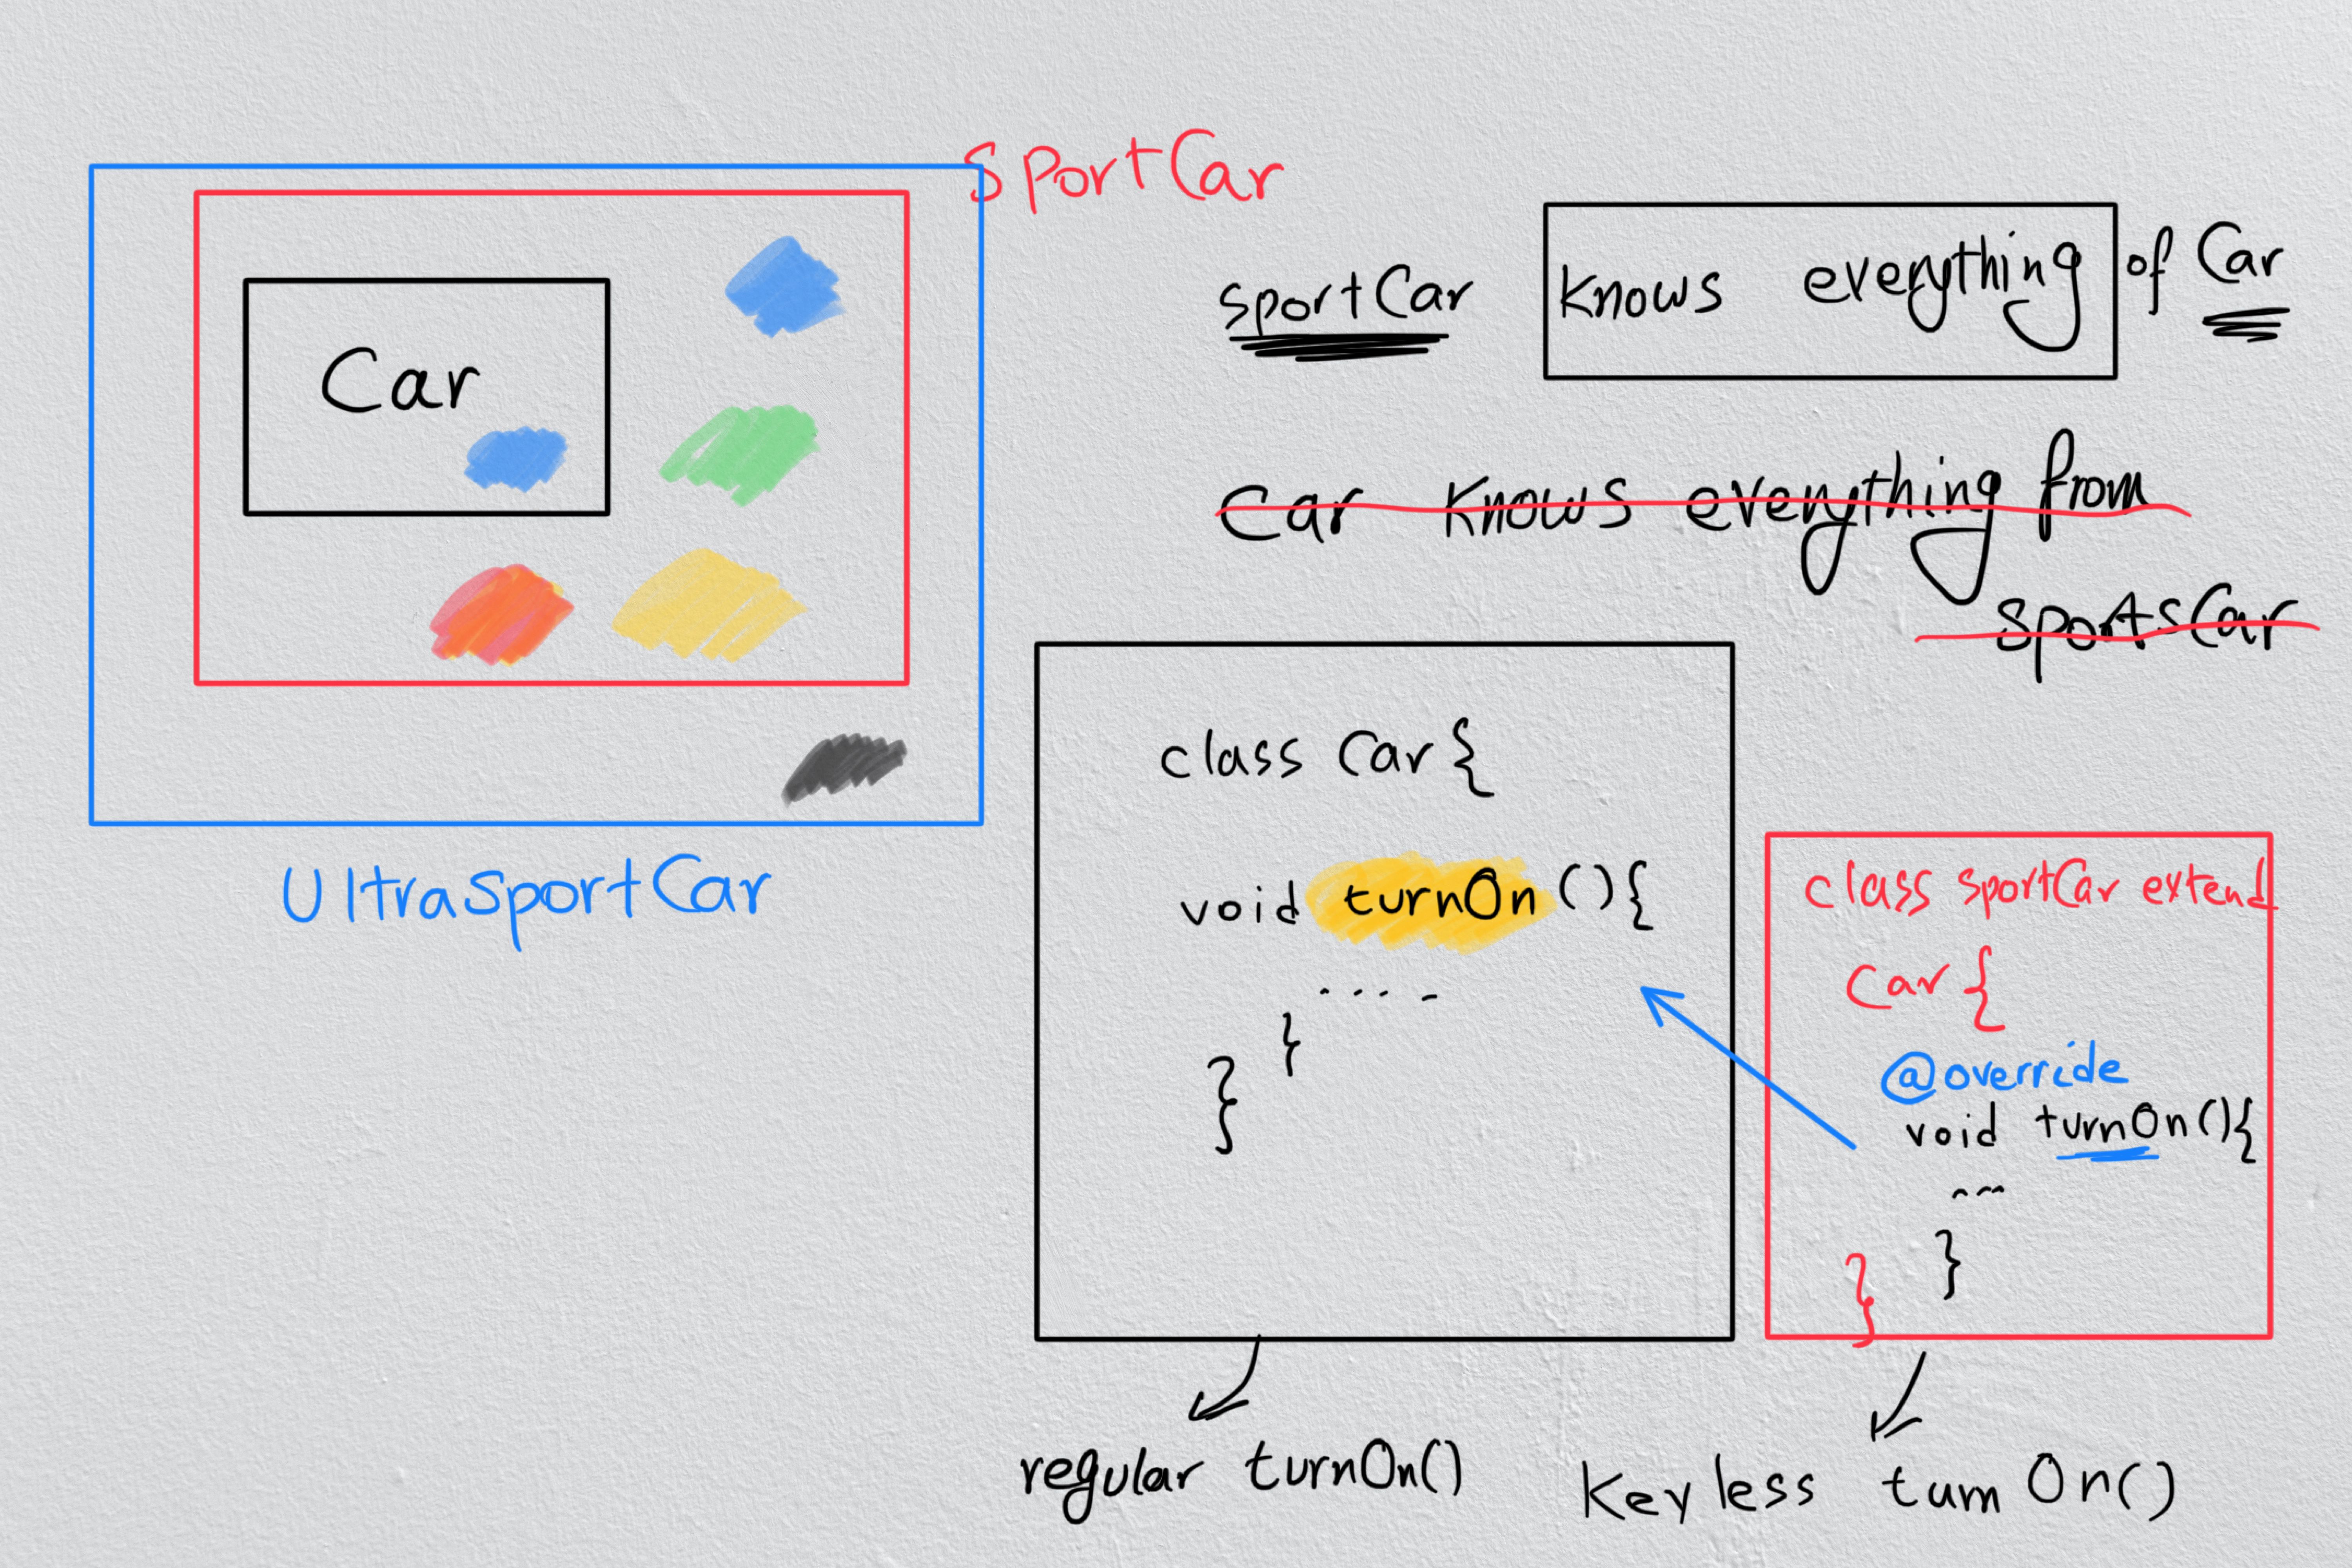 SportCar
Car
UltraSportCar
sportCar knows everything of Car
Car knows everything from
sportsCar
class Car {
void turnOn () {
....
}
}
class sportCar extend
Car {
@override
void turnOn () {
...
}
}
regular turnOn()
Keyless turnOn()